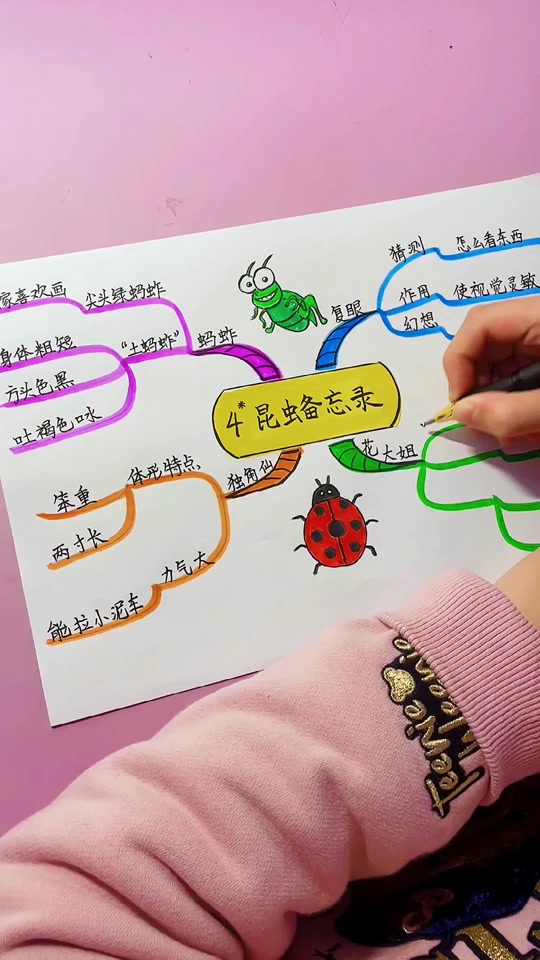 4*昆虫备忘录
复眼
猜测
怎么看东西
作用
使视觉灵敏
幻想
花大姐
蚂蚱
尖头绿蚂蚱
家喜欢画
“土蚂蚱”
身体粗短
方头色黑
吐褐色口水
独角仙
体形特点
笨重
两寸长
力气大
能拉小泥车